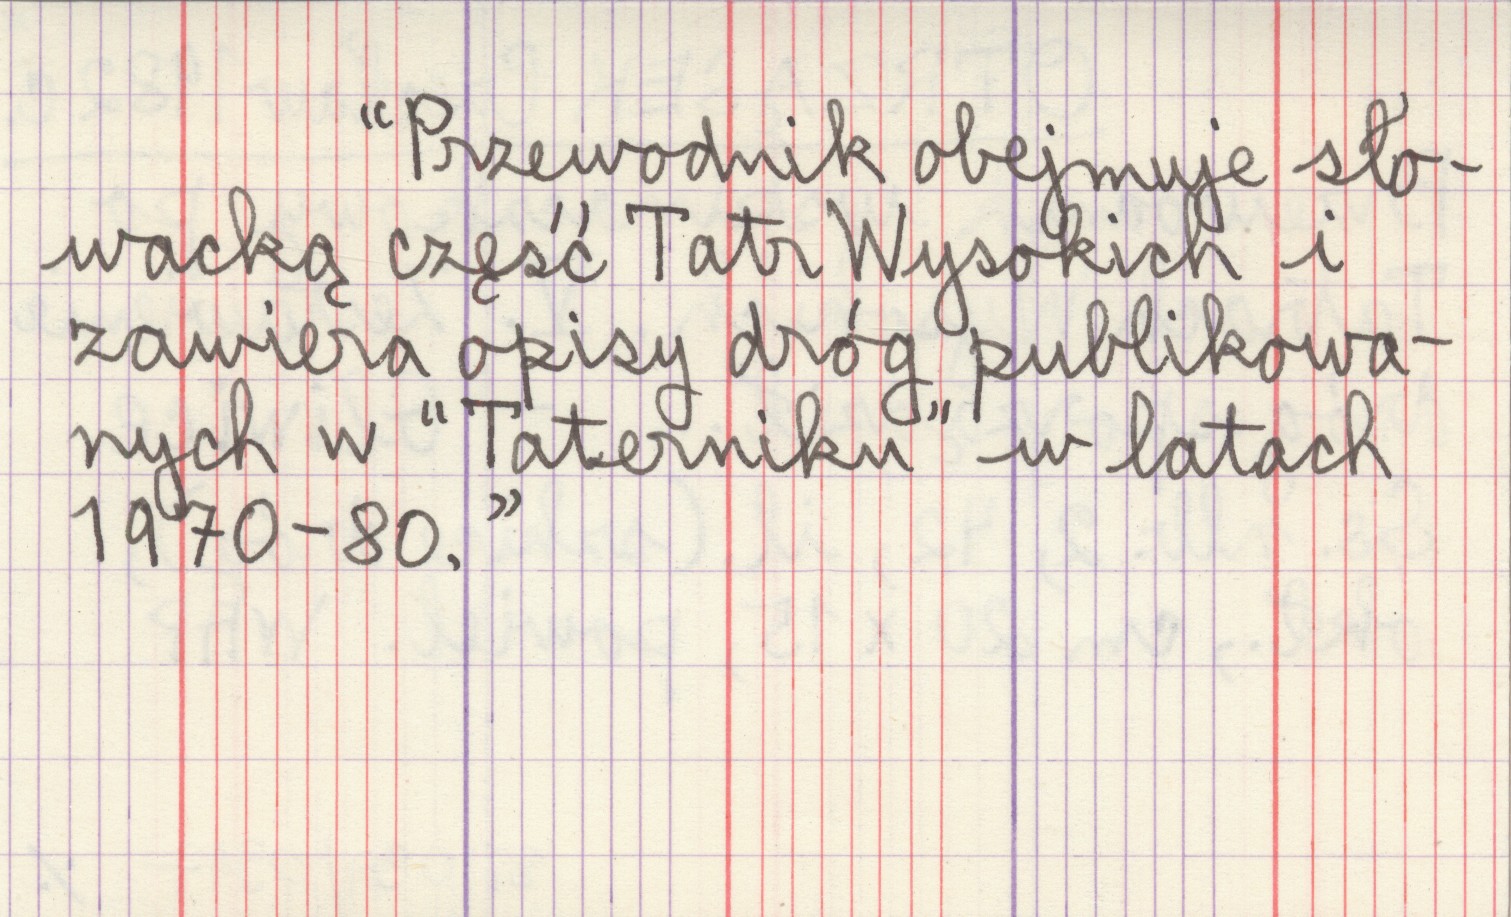 “Przewodnik obejmuje sło-
wacką część Tatr Wysokich i
zawiera opisy dróg publikowa-
nych w “Taterniku” w latach
1970-80.”